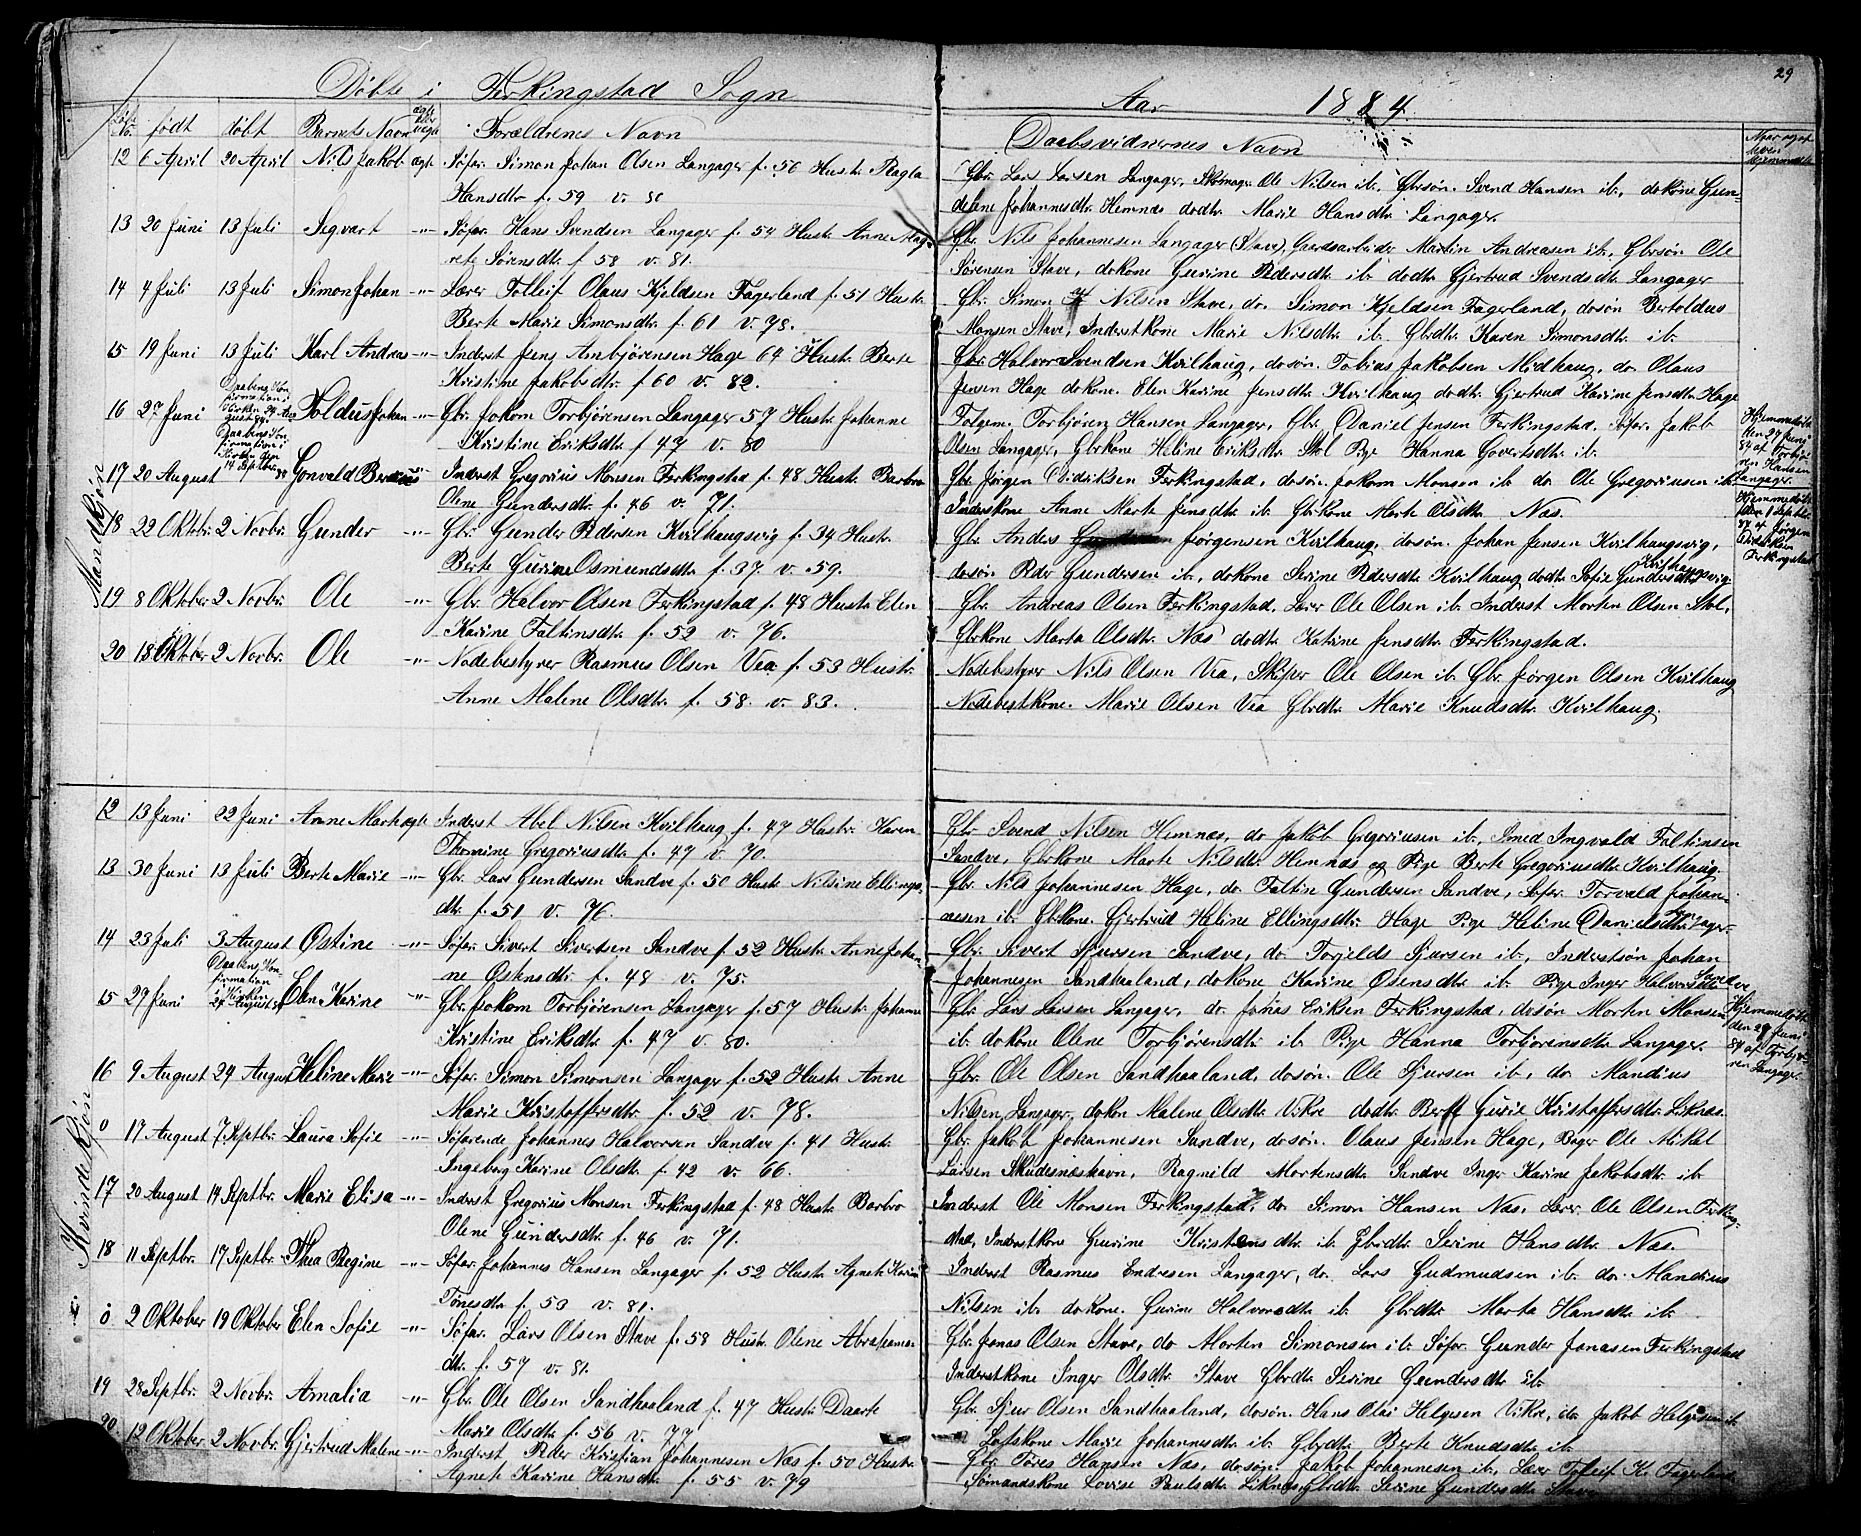 29
Døbte i Ferkingstad Sogn Aar 1884.
Løbe No. født døbt Barnets Navn ægte eller uægte Forældrenes Navn Daabsvidnernes Navn
Mandkjøn
12 6 April 20 April Nils Jakob ægte Søfar. Simon Johan Olsen Langager f. 56 Hustr. Ragla
Hansdtr f. 59 v. 80
Gbr. Lars Larsen Langager, Skomager Ole Nilsen ib. Gbrsøn. Svend Hansen ib., do kone Gun-
delene Johannesdtr. Hemnæs do dtr. Marie Hansdtr. Langager.
13 20 Juni 13 Juli Sigvart -"- Søfar. Hans Svendsen Langager f. 54 Hustr. Anne Mag-
rete Sørensdtr. f 58 v. 81.
Gbr. Nils Johannesen Langager (Stave), Gaardsarbeider Martin Andreasen ib., Gbrsøn Ole
Sørensen Stave, do kone Gurine Pedersdtr. ib. do dtr. Gjertrud Svendsdtr. Langager
14 4 Juli 13 Juli Simon Johan -"- Lærer Tolleif Olaus Kjeldsen Fagerland f. 51 Hustr.
Berte Marie Simonsdtr. f. 61 v. 78.
Gbr. Simon Nilsen Stave, do. Simon Kjeldsen Fagerland, do søn Bertoldus
Monsen Stave, Inderstkone Marie Nilsdtr. ib. Gbrdtr. Karen Simonsdtr. ib.
15 19 Juni 13 Juli Karl Andreas -"- Inderst Jens Anbjørensen Hage 64 Hustr. Berte
Kristine Jakobsdtr. f 60 v. 82.
Gbr. Halvor Svendsen Kvilhaug, do søn. Tobias Jakobsen Midhaug, do. Olaus
Jensen Hage do kone. Elen Karine Jensdtr. Kvilhaug do dtr. Gjertrud Karine Jensdtr. Hage
16 27 Juni Daabens Kon-
firmation i
Kirken 24 Au
gust 84 Toldus Johan -"- Gbr. Jokom Torbjørensen Langager 57 Hustr. Johanne
Kristine Eriksdtr. f 47 v. 80
Folgem. Torbjøren Hansen Langager, Gbr. Daniel Jensen Ferkingstad. Søfar. Jakob
Olsen Langager, Gbrkone Heline Eriksdtr. Stol Pige Hanna Govertsdtr. ib.
Hjemmedøbt
den 27 Juni
84 af Torbjø-
ren Hansen
Langager.
17 20 August Daabens Kon-
firmation i
Kirken den
14 Septbr. 84 Gonvald Bernius -"- Inderst Gregorius Monsen Ferkingstad f. 48 Hustr. Barbro
Olene Gundersdtr. f. 46 v. 71.
Gbr. Jørgen Didriksen Ferkingstad, do søn. Jokom Monsen ib. do. Ole Gregoriusen ib.
Inderskone Anne Marte Jensdtr. ib. Gbrkone Marte Olsdtr. Næs.
Hjemmedøbt
den 1 Septbr.
84 af Jørgen
Didriksen
Ferkingstad
18 22 Oktbr. 2 Novbr. Gunder -"- Gbr. Gunder Pedersen Kvilhaugsvig f. 34 Hustr.
Berte Gurine Osmundsdtr. f. 37. v. 59.
Gbr. Anders Jørgensen Kvilhaug, do søn. Johan Jensen Kvilhaugsvig,
do søn Peder Gundersen ib., do kone Serine Pedersdtr. Kvilhaug do dtr. Sofie Gundersdtr. Kvilhaugsvig
19 8 Oktober 2 Novbr. Ole -"- Gbr. Halvor Olsen Ferkingstad f. 48 Hustr. Elen
Karine Faltinsdtr. f. 52 v. 76.
Gbr. Andreas Olsen Ferkingstad, Lærer Ole Olsen ib. Inderst Morten Olsen Stol,
Gbrkone Marta Olsdtr. Næs do dtr. Katrine Jensdtr. Ferkingstad.
20 18 Oktober 2 Novbr. Ole -"- Nodebestyrer Rasmus Olsen Vea f. 53 Hustr.
Anne Malene Olsdtr. f. 58. v. 83.
Nodebestyrer Nils Olsen Vea, Skiper Ole Olsen ib. Gbr. Jørgen Olsen Kvilhaug
Nodebestkone. Marie Olsen Vea Gbrdtr. Marie Knudsdtr. Kvilhaug.
Kvindekjøn
12 13 Juni 22 Juni Anne Marta ægte Inderst Abel Nilsen Kvilhaug f. 47 Hustr. Karen
Thomine Gregoriusdtr. f. 47 v. 70.
Gbr. Svend Nilsen Hemnæs, do Jakob Gregoriusen ib., Smed Ingvald Faltinsen
Sandve, Gbrkone Marte Nilsdtr. Hemnæs og Pige Berte Gregoriusdtr. Kvilhaug.
13 30 Juni 13 Juli Berte Marie -"- Gbr. Lars Gundersen Sandve f. 50 Hustr. Nilsine Ellings-
dtr. f. 51 v. 76.
Gbr. Nils Johannesen Hage, do. Faltin Gundersen Sandve, Søfar. Torvald Johan-
nesen ib. Gbrkone. Gjertrud Heline Ellingsdtr. Hage Pige Heline Danielsdtr. Langager
14 23 Juli 3 August Østine -"- Søfar. Sivert Sivertsen Sandve f. 52 Hustr. Anne Johan-
ne Østensdtr. f. 48 v. 75.
Gbr. Sivert Sjursen Sandve, do. Torjelds Sjursen ib., Inderstsøn Johan
Johannesen Sandhaaland, do kone Karine Østensdtr. ib. Pige Inger Halvorsdtr. Sandve
15 27 Juni Daabens Kon-
firmation
i Kirken
24 August 84 Elen Karine -"- Gbr. Jokom Torbjørensen Langager f. 57 Hustr. Johanne
Kristine Eriksdtr. f. 47 v. 80.
Gbr. Lars Larsen Langager, do. Jonas Eriksen Ferkingstad, do søn Morten Monsen
ib. do kone Olene Torbjørensdtr. ib. Pige Hanna Torbjorensdtr. Langager.
Hjemmedøbt
den 27 Juni
84 af Torbjø-
ren Langager.
16 9 August 24 August Heline Marie -"- Søfar. Simon Simonsen Langager f. 52 Hustr. Anne
Marie Kristoffersdtr. f. 52 v. 78.
Gbr. Ole Olsen Sandhaaland, do søn. Ole Sjursen ib., do. Mandius
Nilsen Langager, do kon Malene Olsdtr. Vikre do dtr. Berte Gurie Kristoffersdtr. Liknæs.
0 17 August 7 Septbr. Laura Sofie -"- Søfarende Johannes Halvorsen Sandve f. 41 Hustr.
Ingeborg Karine Olsdtr. f. 42 v. 66.
Gbr. Jakob Johannesen Sandve, do søn. Olaus Jensen Hage, Bager Ole Mikal
Larsen Skudesnæshavn, Ragnild Mortensdtr. Sandve Inger Karine Jakobsdtr. ib
17 20 August 14 Septbr. Marie Elisa -"- Inderst Gregorius Monsen Ferkingstad f. 48 Hustr. Barbro
Olene Gundersdtr. f. 46 v. 71.
Inderst Ole Monsen Ferkingstad, do Simon Hansen Næs, Lærer Ole Olsen Ferking-
stad, Inderstkone Gurine Kristensdtr. ib. Gbrdtr. Serine Hansdtr. Næs.
18 11 Septbr. 17 Septbr. Thea Regine -"- Søfar. Johannes Hansen Langager f. 52 Hustr. Agnete Karine
Tønesdtr. f. 50 v. 81.
Inderst Rasmus Endresen Langager, do. Lars Gudmudsen ib. do. Mandius
Nilsen ib. do kone. Gurine Halvorsdtr. ib. Gbrdtr. Marta Hansdtr. ib.
0 2 Oktober 19 Oktober Elen Sofie -"- Søfar. Lars Olsen Stave f. 58 Hustr. Olene Abrahams-
dtr. f. 57 v. 81.
Gbr. Jonas Olsen Stave, do Morten Simonsen ib. Søfar. Gunder Jonasen Ferkingstad
Inderstkone Inger Olsdtr. Stave Gbrdtr. Serine Gundersdtr. ib.
19 28 Septbr. 2 Novbr. Amalia -"- Gbr. Ole Olsen Sandhaaland f. 47 Hustr. Daarte
Marie Olsdtr. f. 56 v. 77
Gbr. Sjur Olsen Sandhaaland, do søn. Hans Olai Helgesen Vikre, do. Jakob Helgesen ib.
Loftskone Marie Johannesdtr. ib. Gbrdtr. Berte Knudsdtr. ib.
20 12 Oktober 2 Novbr. Gjertrud Malene -"- Inderst Peder Kristian Johannesen Næs f. 50 Hustr.
Agnete Karine Hansdtr. f. 55 v. 79
Gbr. Tøres Hansen Næs, do søn. Jakob Johannesen ib., Lærer Toleif K. Fagerland
Sømandskone Lovise Paulsdtr. Liknæs, Gbrdtr. Serine Gundersdtr. Stave